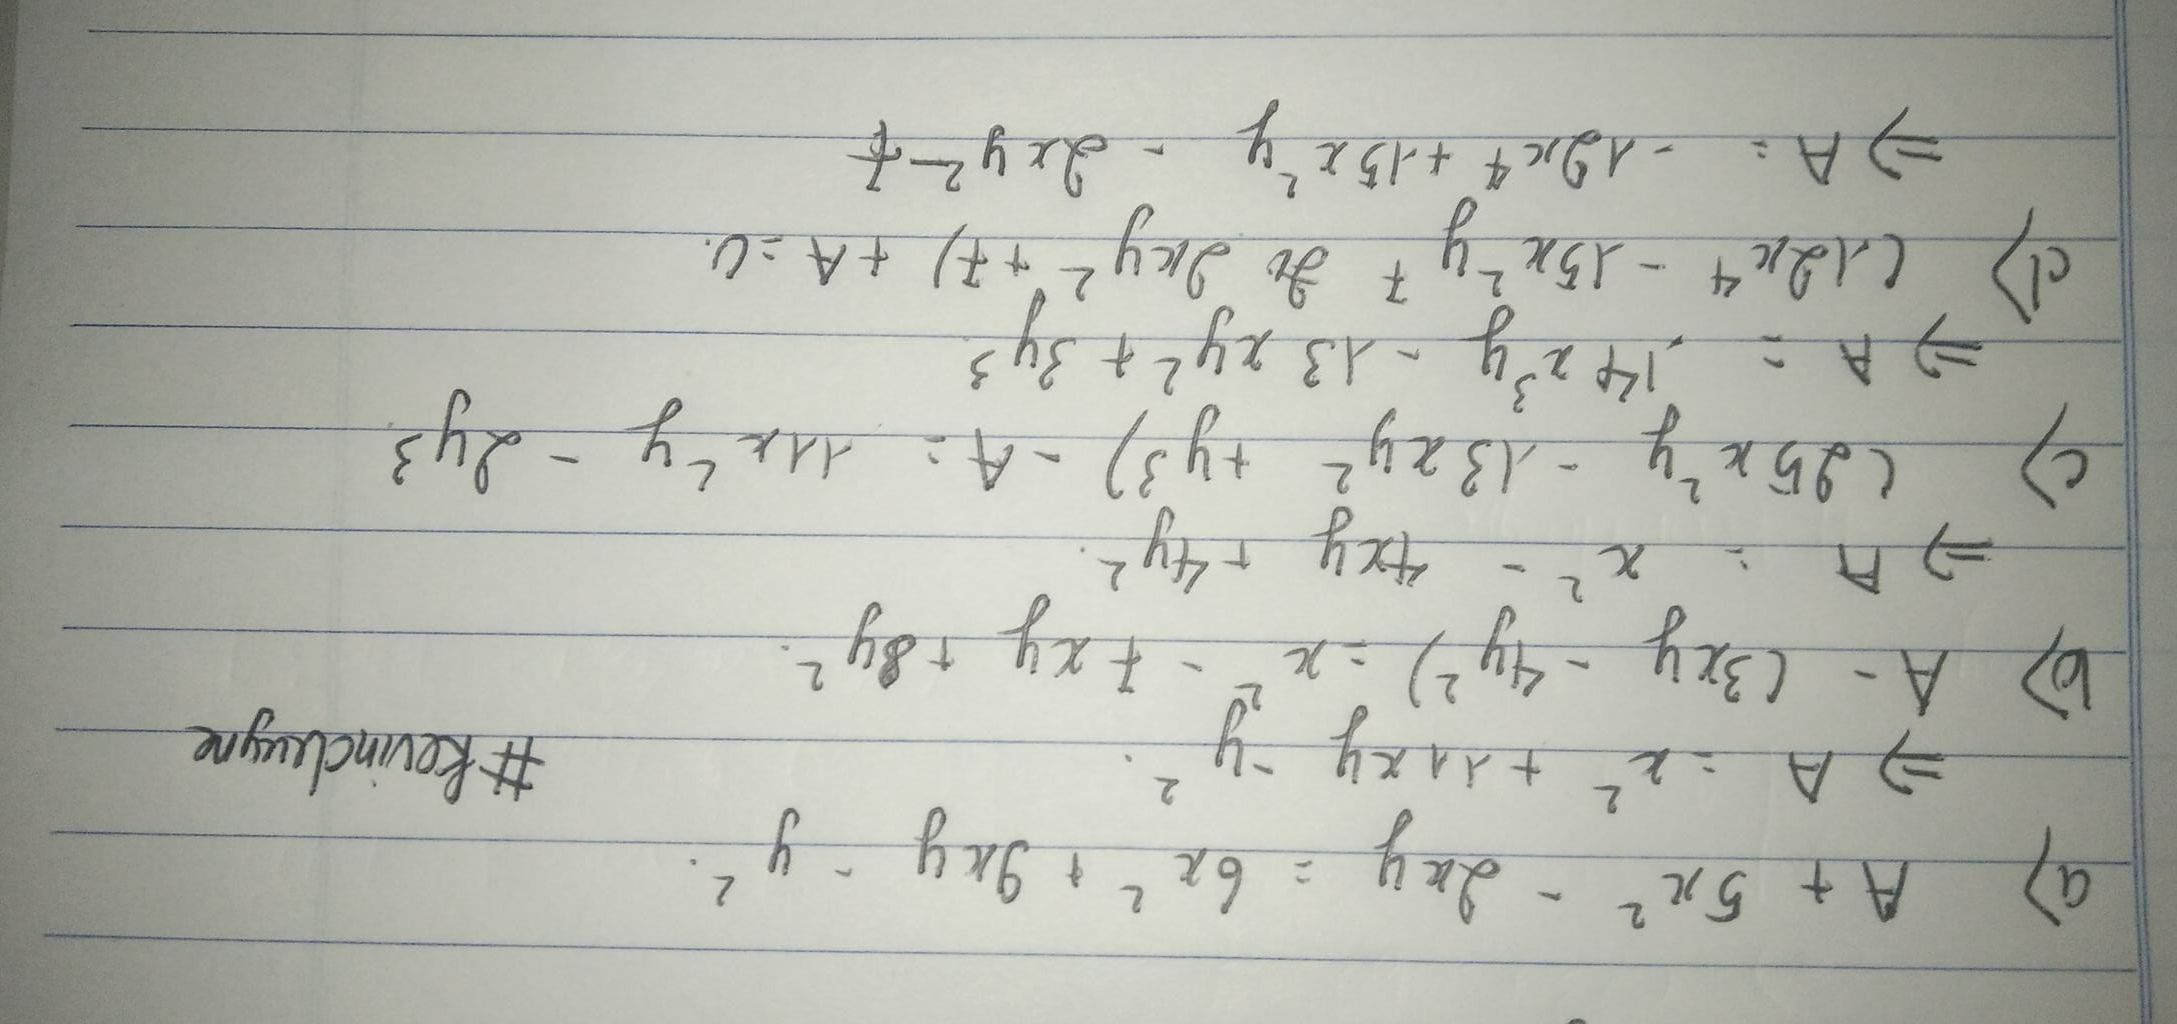 a) A + 5x² - 2xy = 6x² + 9xy - y².
=> A = x² + 11xy - y².
#Kevinclewyne
b) A - (3xy - 4y²) = x² - 7xy + 8y².
=> A = x² - 4xy + 4y².
c) (25x²y - 13xy² + y³) - A = 11x²y - 2y³
=> A = 14x³y - 13xy² + 3y³
d) (12x⁴ - 15x²y + 2xy² + 7) + A = 0.
=> A = -12x⁴ + 15x²y - 2xy² - 7